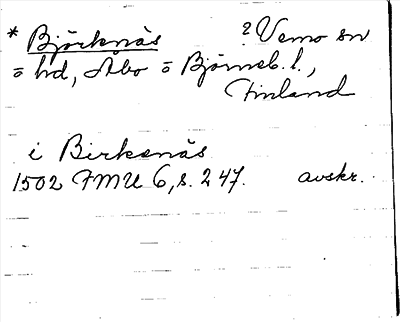 * Björknäs ? Vemo sn
= hd, Åbo = Björneb. l.,
Finland
i Birkenäs
1502 FMU 6, s. 247. avskr.